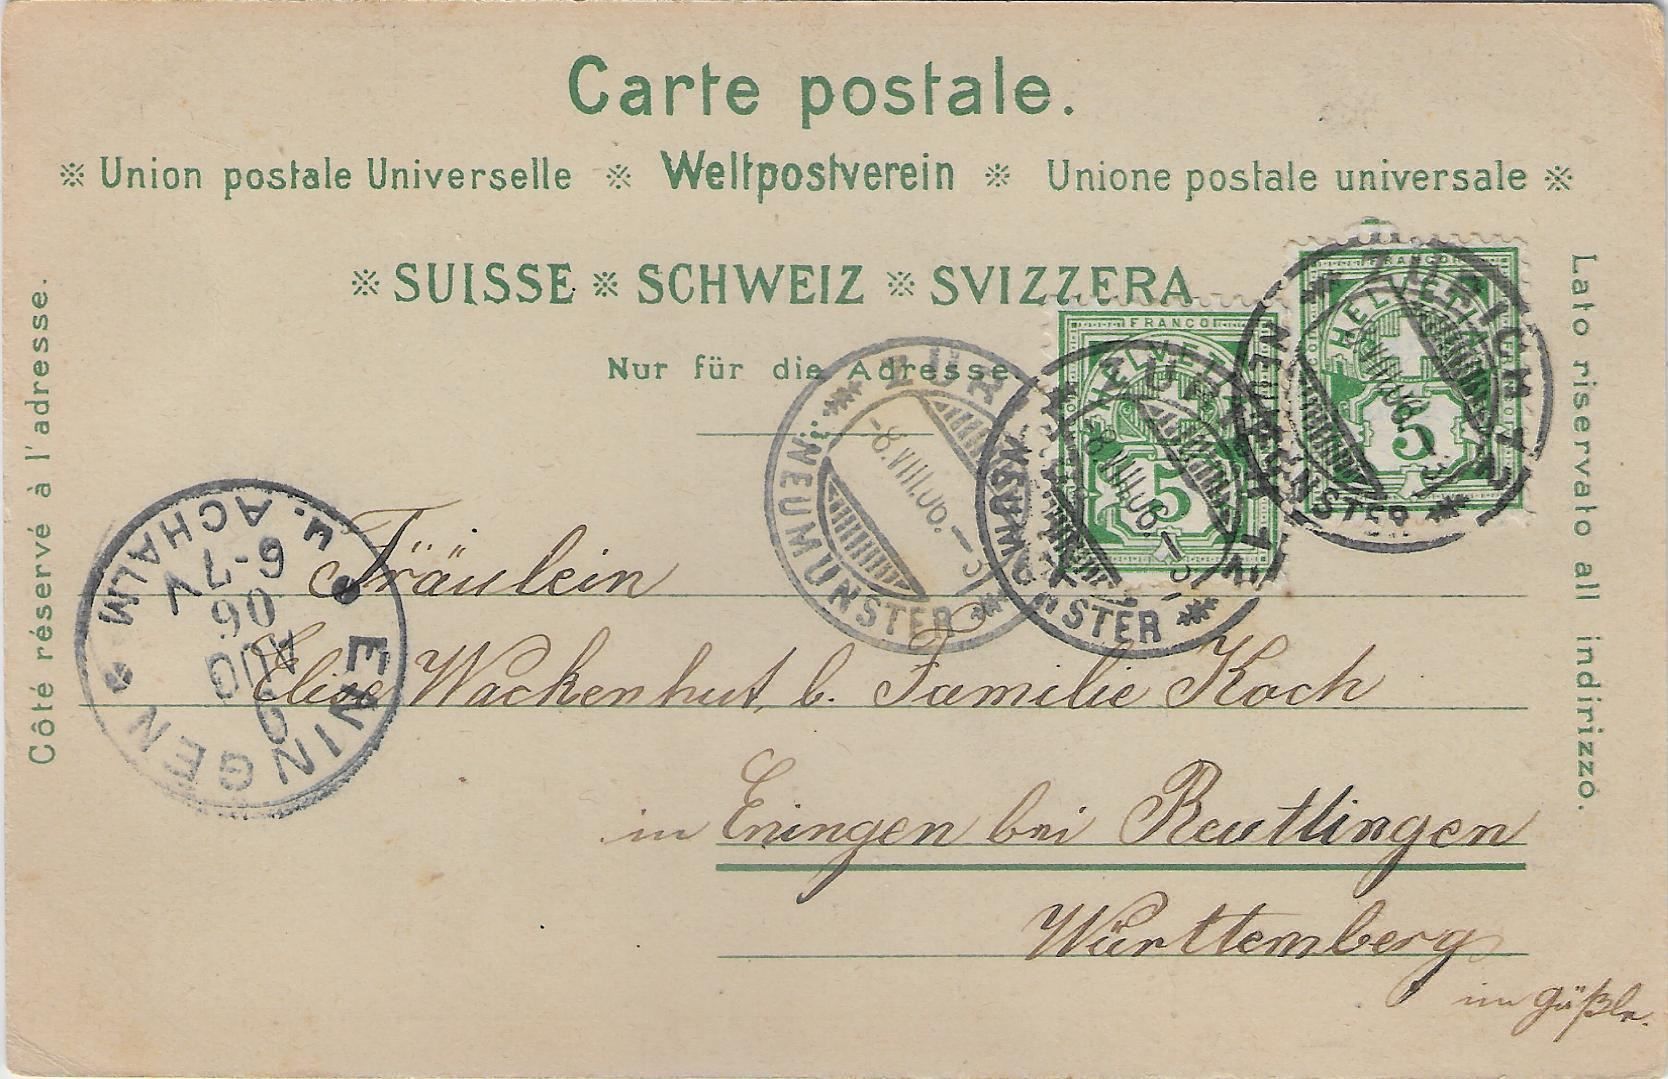 Carte postale.
※ Union postale Universelle ※ Weltpostverein ※ Unione postale universale ※
※ SUISSE ※ SCHWEIZ ※ SVIZZERA
Nur für die Adresse
Côté réservé à l'adresse.
Lato riservato all indirizzo.
FRANCO
HELVETIA
5
FRANCO
HELVETIA
5
ZÜRICH
NEUMÜNSTER
-8.VIII.06.-5
ZÜRICH
NEUMÜNSTER
-8.VIII.06.-5
ZÜRICH
NEUMÜNSTER
VIII.06.
ENINGEN
u. ACHALM
9
AUG
06
6-7V
Fräulein
Elise Wackenhut, b. Familie Koch
in Eningen bei Reutlingen
Württemberg
im Gäßle.